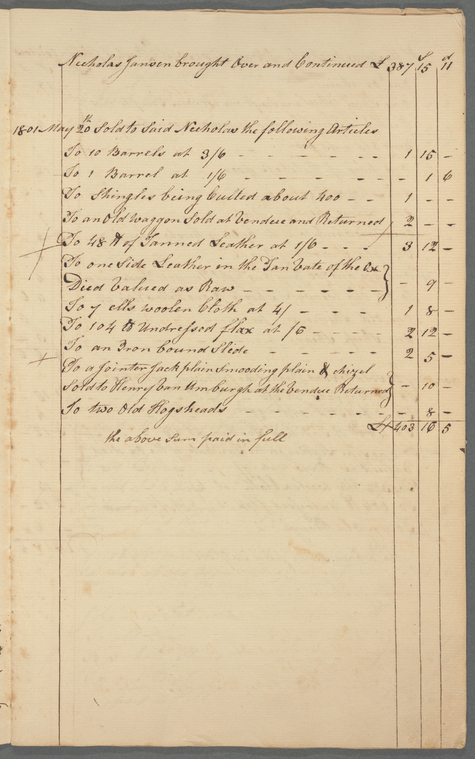 Necholas Jansen brought Over and Continued £ 387 15 11
1801 May 20th Sold to Said Necholas the following Articles
To 10 Barrels at 3/6 - - - - 1 15 -
To 1 Barrel at 1/6 - - - - - 1 6
To Shingles being Culled about 400 - - 1 - -
To an Old waggon Sold at Vendue and Returned 2 - -
To 48 lb of Tanned Leather at 1/6 - - - 3 12 -
To one Side Leather in the Tan Vate of the Ox
Died Valued as Raw - - - - - - 9 -
To 7 ells woolen Cloth at 4/ - - - - 1 8 -
To 104 lb Undressed flax at /6 - - - - 2 12 -
To an Iron bound Slide - - - - - 2 5 -
To a jointer Jack plain Smooding plain & chizel
Sold to Henry Van Umburgh at the Vendue Returned - 10 -
To two Old Hogsheads - - - - - - 8 -
£ 403 16 5
the above Sum paid in full